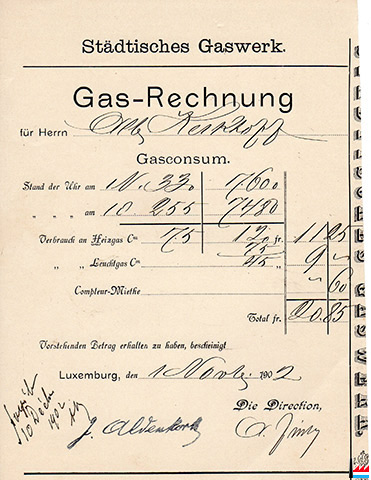 Städtisches Gaswerk.
Gas-Rechnung
für Herrn Kerkhoff
Gasconsum.
Stand der Uhr am 11. 330 7600
" " " am 10 255 7480
Verbrauch an Heizgas Cm 75 120 fr. 11 25
75
" " Leuchtgas Cm 45 9 "
Compteur-Miethe " 60
Total fr. 20.85
Vorstehenden Betrag erhalten zu haben, bescheinigt
Luxemburg, den 1 Novbr 1902
Die Direction,
10 Dech
1902
J. Aldenkortt